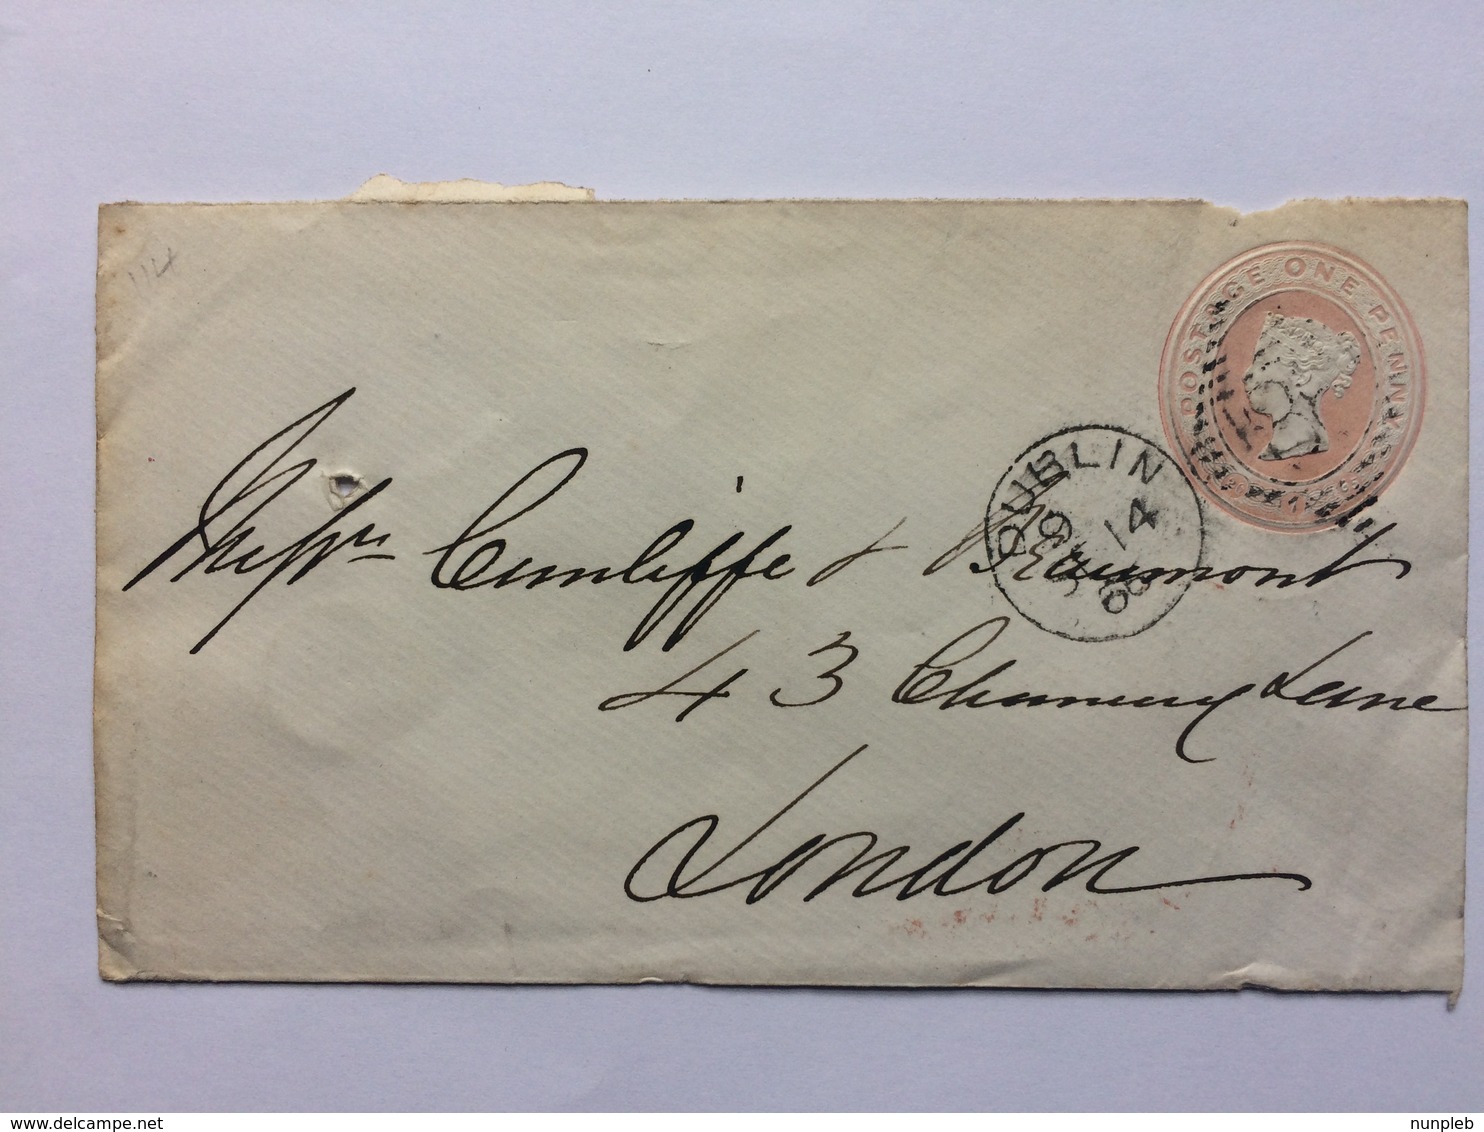 114
POSTAGE ONE PENNY
DUBLIN
14
68
Messrs Cunliffe & Beaumont
43 Chancery Lane
London
nunpleb